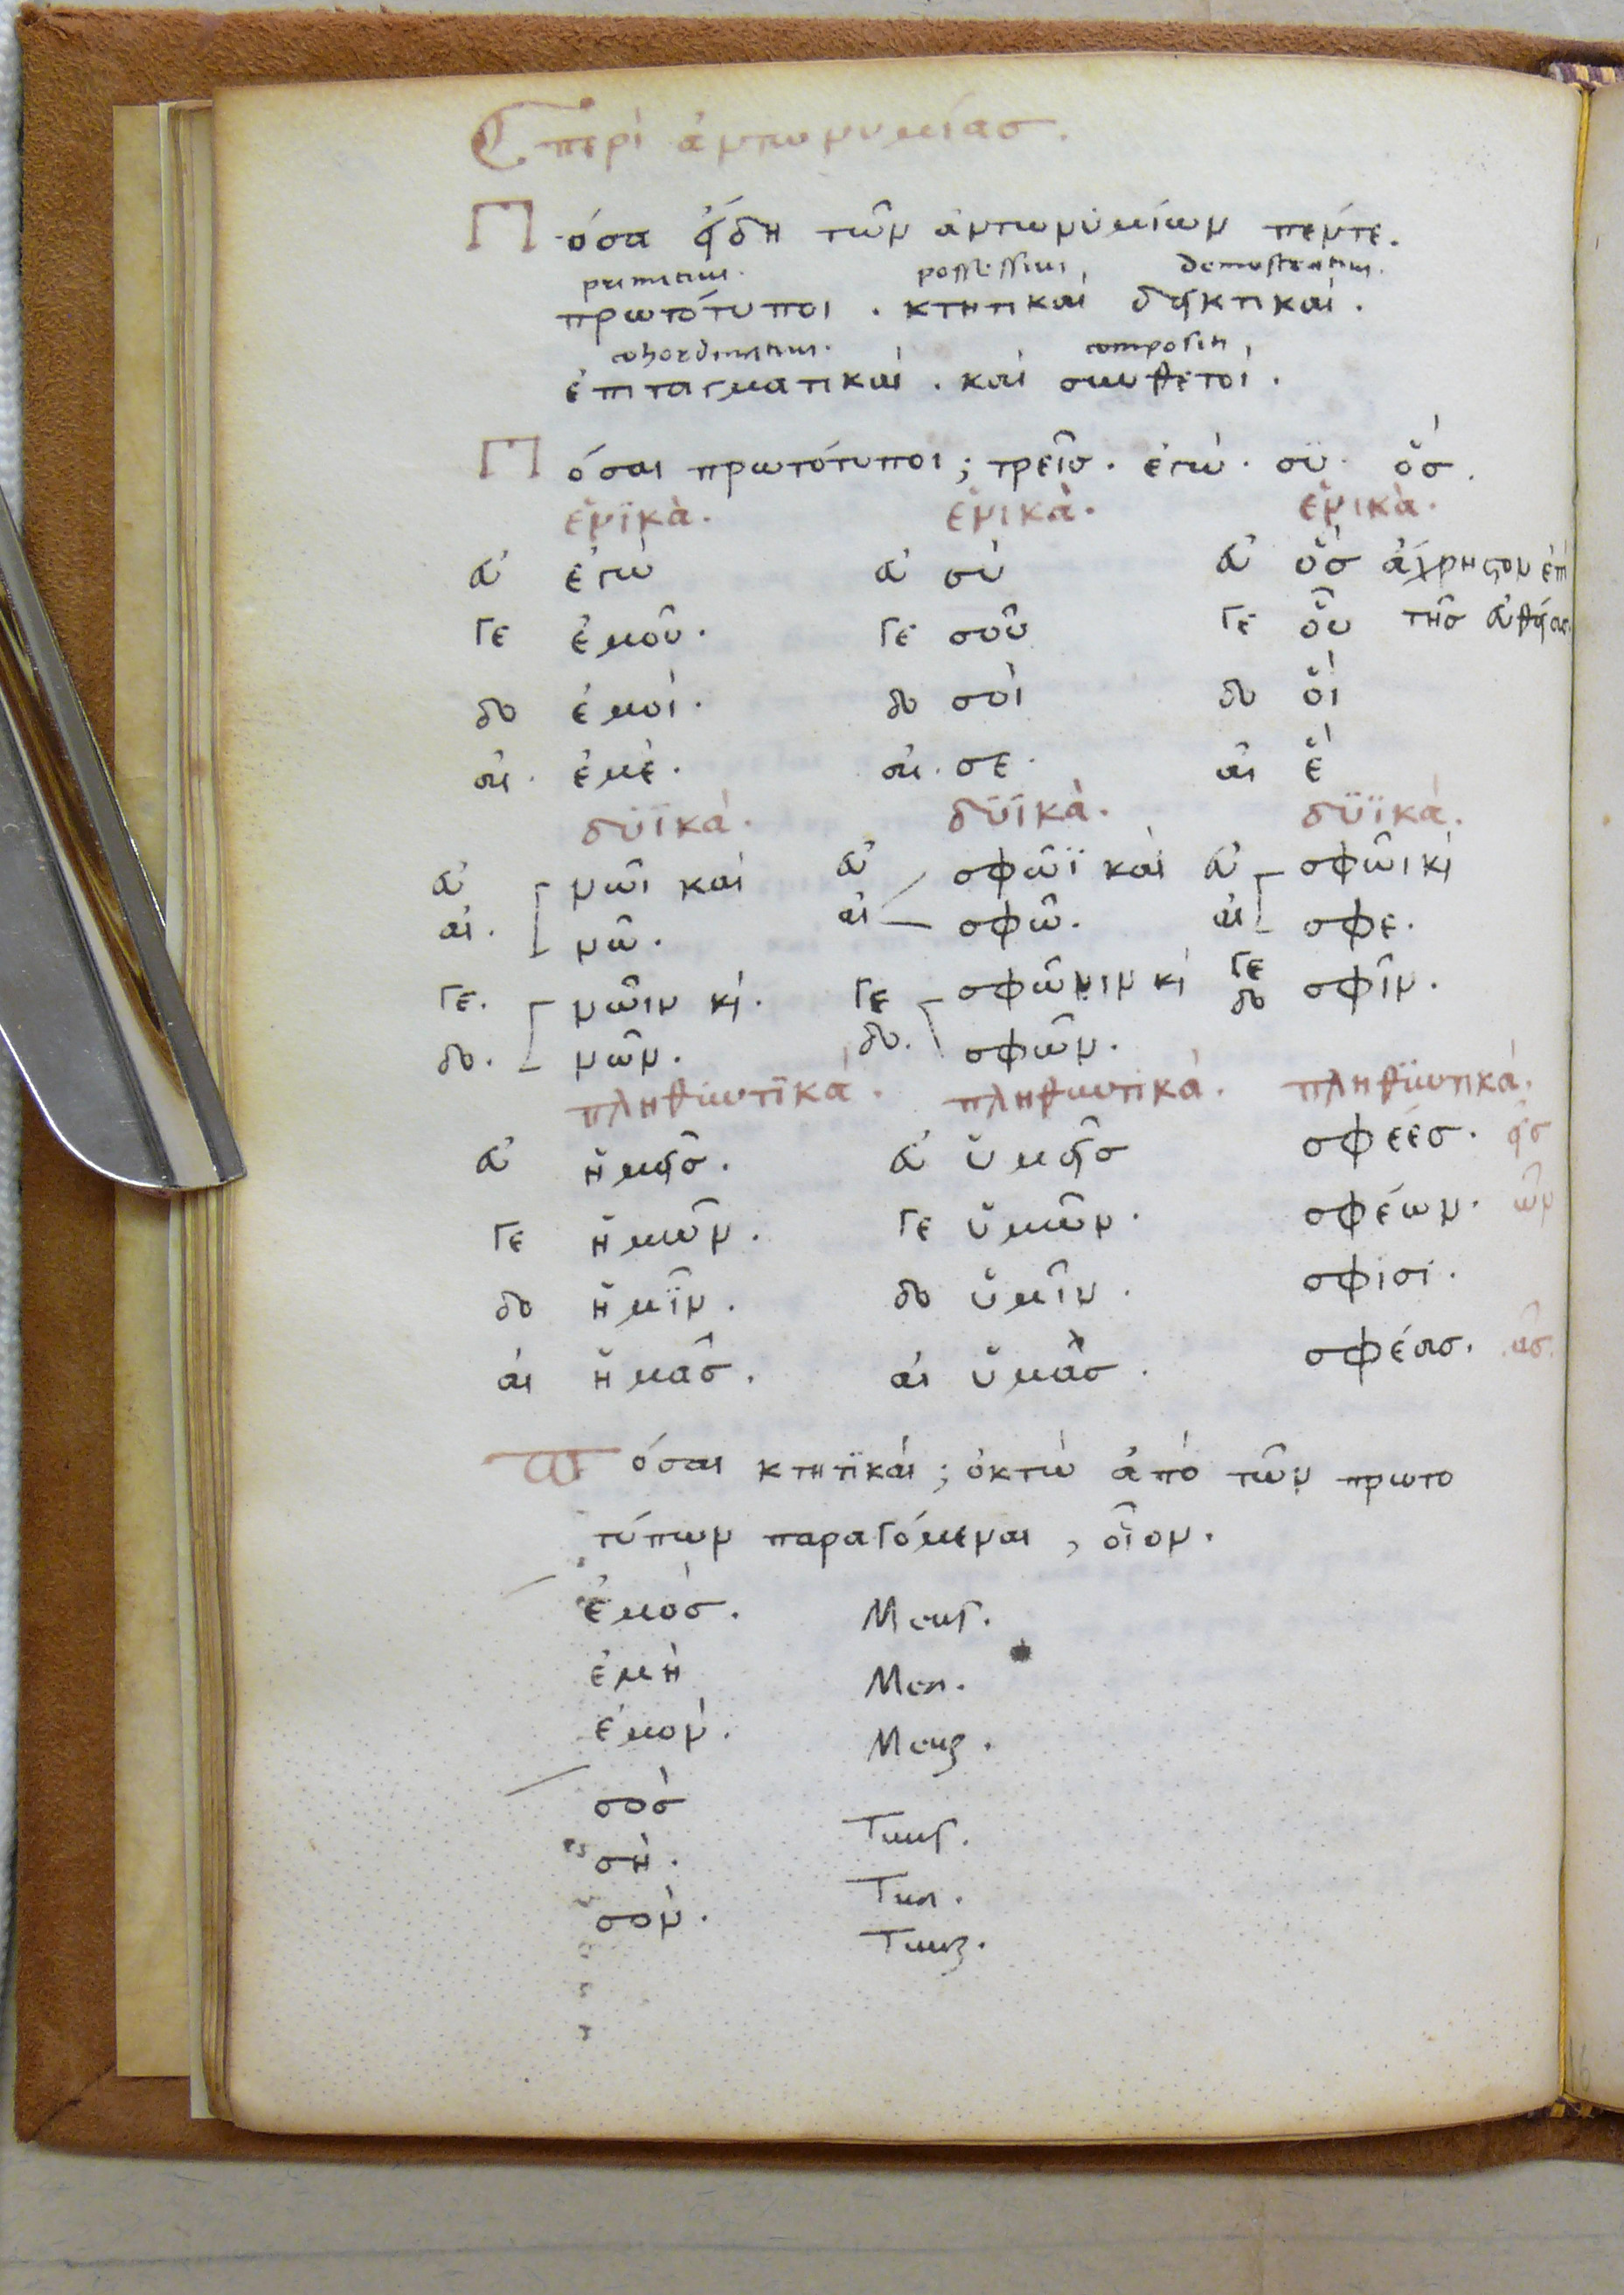 περὶ ἀντωνυμίασ.
Πόσα εἴδη τῶν ἀντωνυμίων πέντε.
primitiui. possessiui, demostratiui.
πρωτότυποι . κτητικαὶ δεικτικαί.
cohordinatiui. compositi,
ἐπιταγματικαὶ . καὶ συνθετοί .
Πόσαι πρωτότυποι ; τρεῖσ . ἐγώ . σϋ . ὅσ .
ἑνϊκὰ. ἑνικὰ. ἑνικὰ.
εὐ ἐγώ εὐ σύ εὐ ὅσ ἄχρηστον ἐπὶ
γε ἐμοῦ. γε σοῦ γε οὗ τῆσ εὐθείασ.
δο ἐμοί. δο σοὶ δο οἷ
αἰ. ἐμέ. αἰ. σε. αἰ ἕ
δϋϊκὰ. δϋϊκὰ. δϋϊκὰ.
εὐ νῶϊ καὶ εὐ σφῶϊ καὶ εὐ σφῶι κὶ
αἰ. νῶ. αἰ σφῶ. αἰ σφε.
γε. νῶιν κὶ. γε σφῶϊν κὶ γε σφῖν.
δο. νῶν. δο. σφῶν. δο
πληθυντϊκά. πληθυντικά. πληθϋντικά.
εὐ ἡμεῖσ. εὐ ὑμεῖσ σφέεσ. εῖσ
γε ἡμῶν. γε ὑμῶν. σφέων. ῶν
δο ἡμῖν. δο ὑμῖν. σφίσι.
αἰ ἡμᾶσ. αἰ ὑμᾶσ. σφέασ. ᾶσ.
Πόσαι κτητϊκαί ; ὀκτὼ ἀπὸ τῶν πρωτο
τύπων παραγόμεναι , οἷον.
ἐμὸσ. Meus.
ἐμὴ Mea.
ἐμὸν. Meuȝ.
σὸσ Tuus.
σὴ. Tua.
σὸν. Tuuȝ.